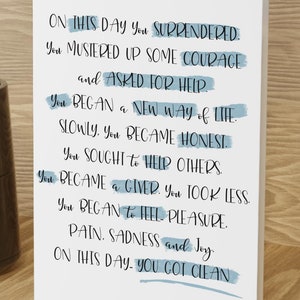 ON THIS DAY you SURRENDERED.
you MUSTERED UP SOME COURAGE
and ASKED FOR HELP.
you BEGAN a NEW WAY of LIFE.
SLOWLY, you BECAME HONEST.
you SOUGHT to HELP OTHERS.
you BECAME a GIVER. you TOOK LESS.
you BEGAN to FEEL PLEASURE,
PAIN, SADNESS and Joy.
ON THIS DAY, YOU GOT CLEAN